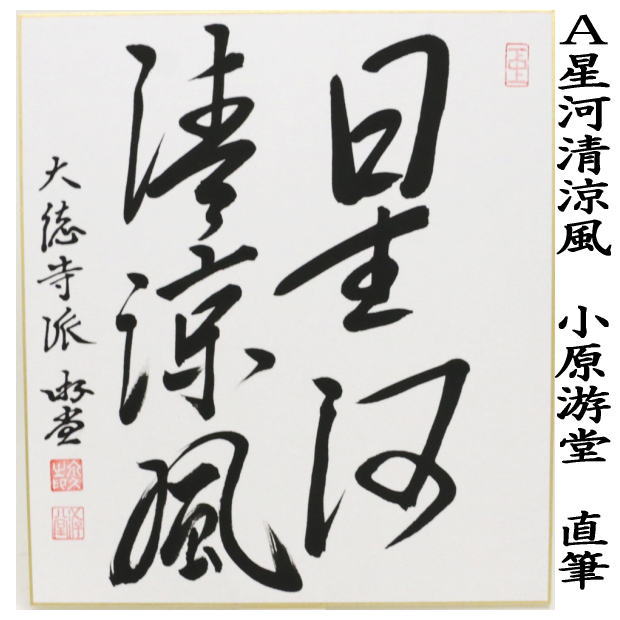 A星河清涼風 小原游堂 直筆
星河
清涼風
大徳寺派 游堂